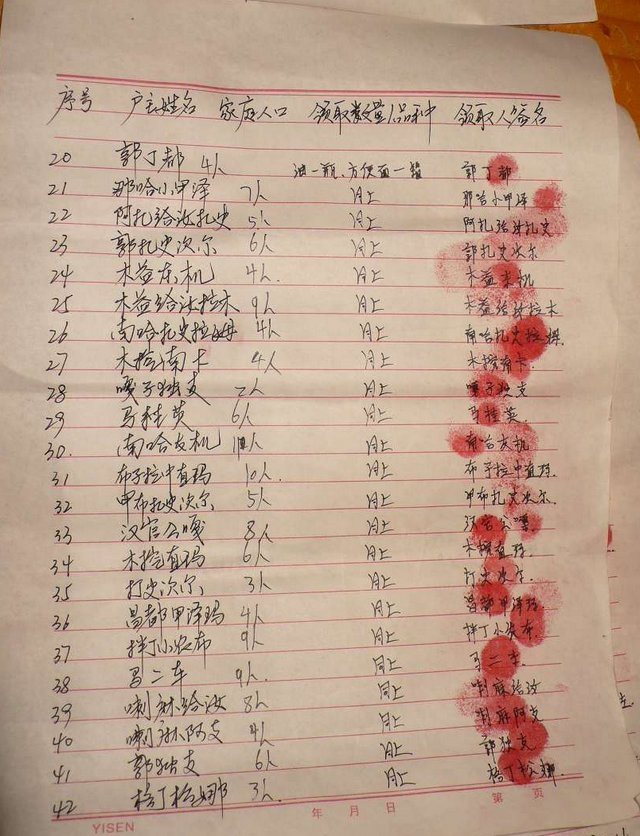 序号 户主姓名 家庭人口 领取数量/品种 领取人签名
20 郭丁都 4人 油一瓶、方便面一箱 郭丁都
21 那哈小甲泽 7人 同上 那哈小甲泽
22 阿扎给汝扎史 5人 同上 阿扎给汝扎史
23 郭扎史次尔 6人 同上 郭扎史次尔
24 木益东机 4人 同上 木益东机
25 木益给汝拉木 9人 同上 木益给汝拉木
26 南哈扎史拉姆 4人 同上 南哈扎史拉
27 木挖南卡 4人 同上 木挖南卡
28 嘎子独支 2人 同上 嘎子独支
29 马桂英 6人 同上 马桂英
30. 南哈友机 人 同上 南哈友机
31 布子拉中直玛 10人. 同上 布子拉中直玛.
32 甲布扎史次尔 5人 同上 甲布扎史次尔.
33 汉官公嘎 8人 同上 公嘎
34 木挖直玛 6人 同上 木挖直玛.
35 打史次尔 3人 同上 打史次尔
36 昌都甲泽玛 4人 同上 昌都甲泽玛
37 拌丁小农布 9人 同上 拌丁小农布.
38 马二车 9人. 同上 马二车.
39 喇麻给汝 8人 同上 喇麻给汝
40 喇麻阿支 4人 同上 喇麻阿支
41 郭独支 6人 同上 郭独支
42 格丁松娜 3人. 同上 格丁松娜.
YISEN 年 月 日 第 页